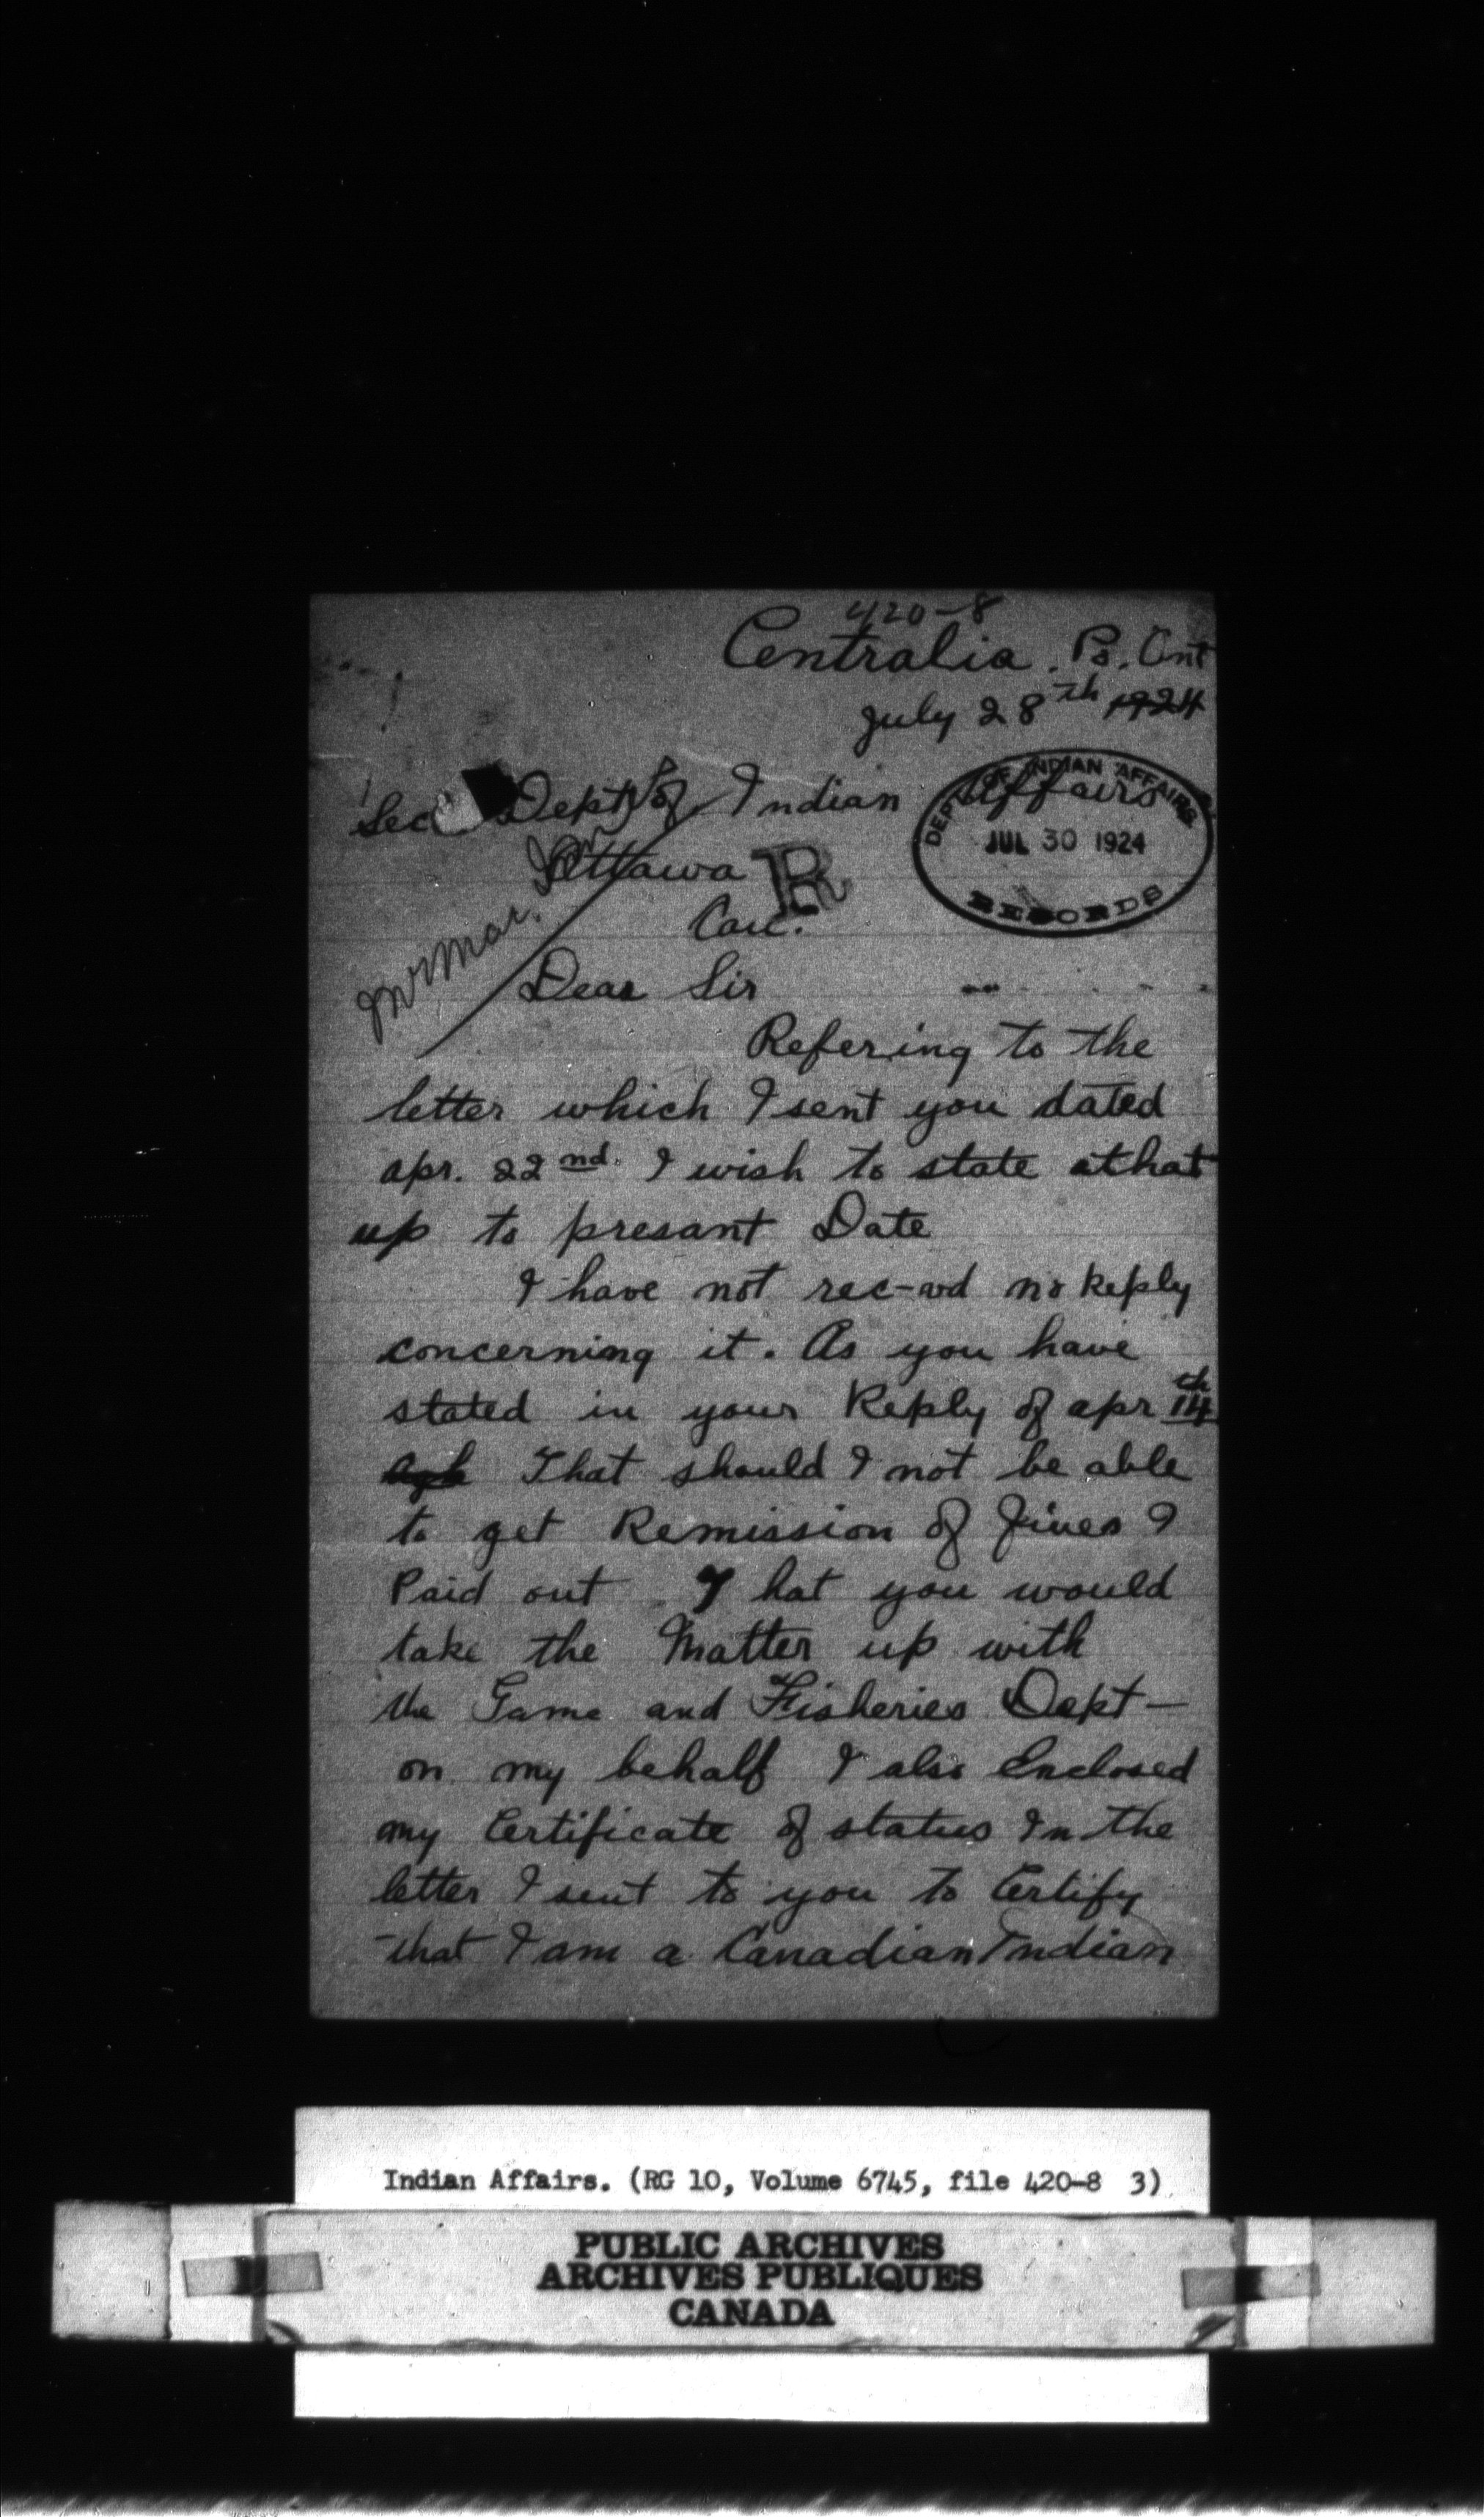 420-8
Centralia. Po. Ont
July 28th 1924
Sec Dept of Indian Affairs
Ottawa
Can.
DEPT. OF INDIAN AFFAIRS
JUL 30 1924
RECORDS
R
Dear Sir
Refering to the
letter which I sent you dated
apr. 22nd. I wish to state athat
up to presant Date
I have not rec-vd no Reply
concerning it. As you have
stated in your Reply of apr 14th
That should I not be able
to get Remission of Fines I
Paid out That you would
take the Matter up with
the Game and Fisheries Dept-
on my behalf I also Enclosed
my Certificate of status In the
letter I sent to you to Certify
that I am a Canadian Indian
Indian Affairs. (RG 10, Volume 6745, file 420-8 3)
PUBLIC ARCHIVES
ARCHIVES PUBLIQUES
CANADA